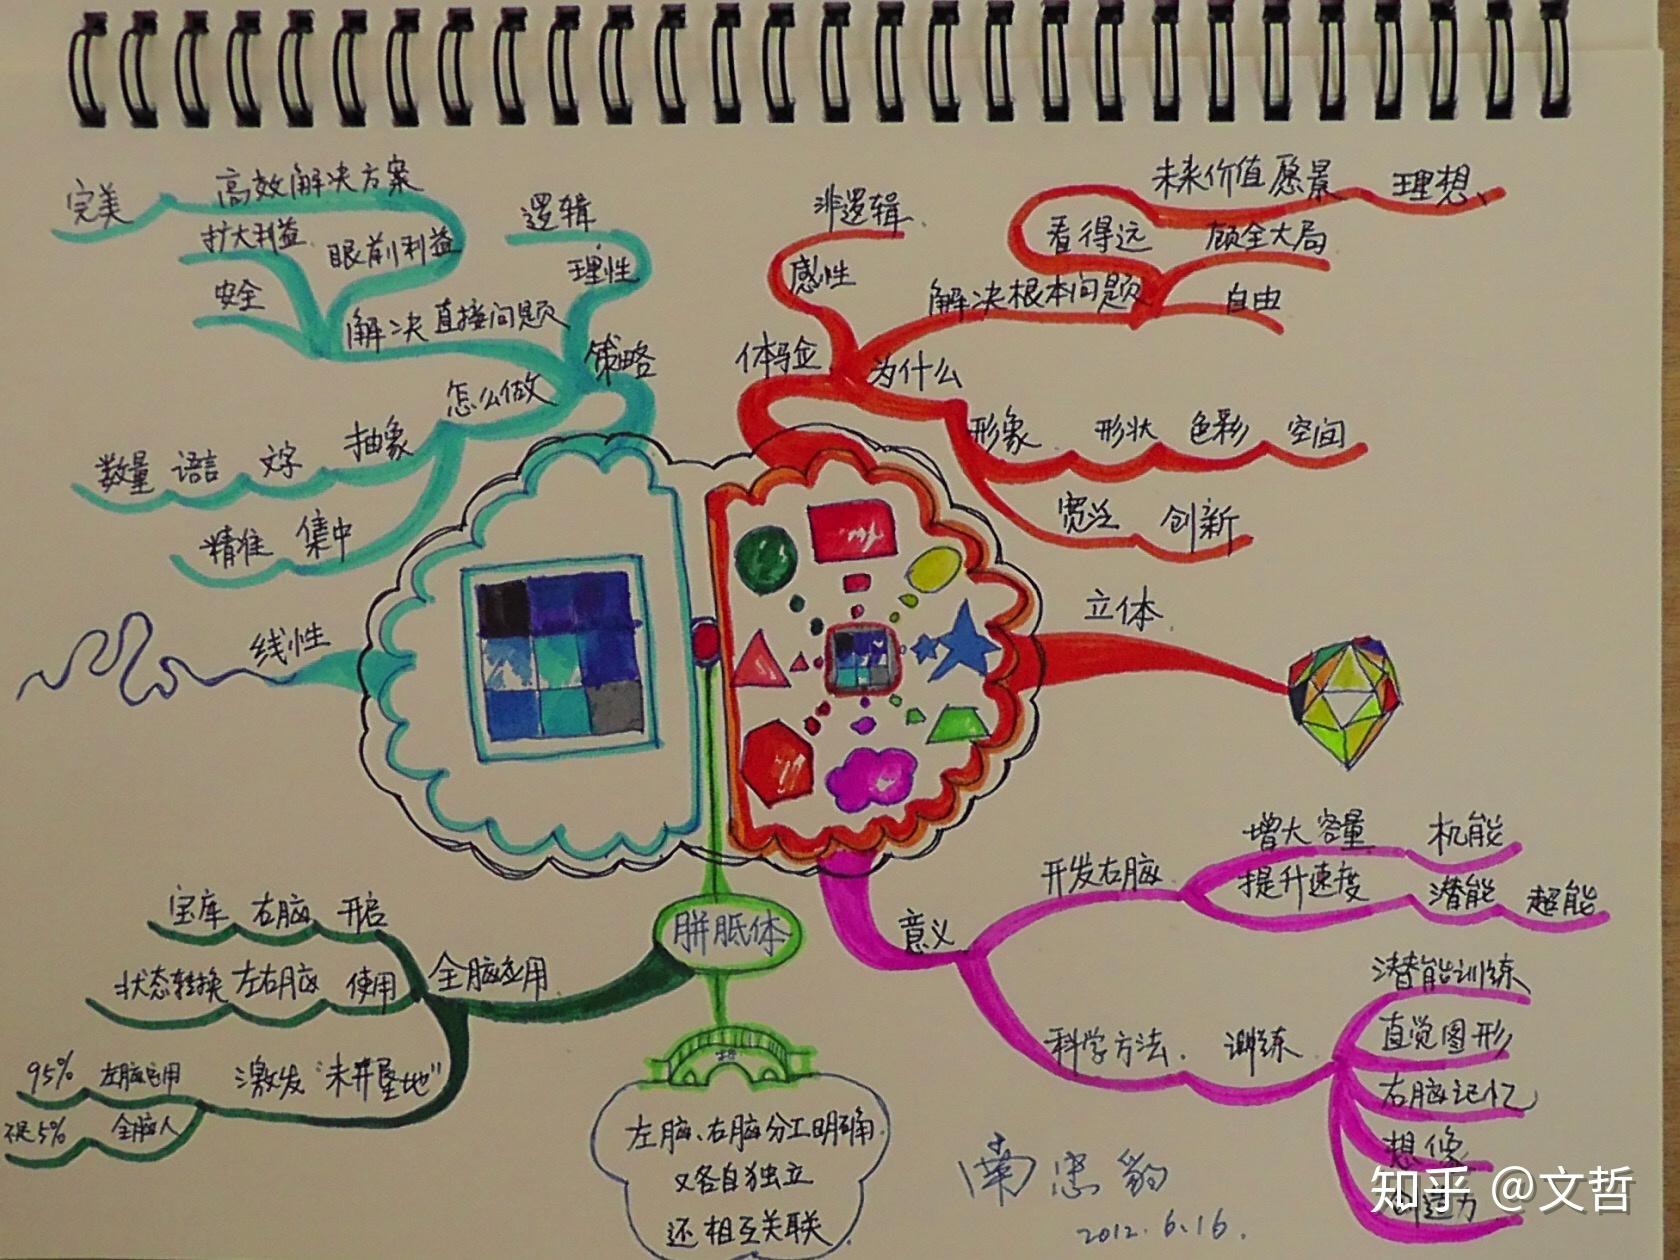 完美
高效解决方案
扩大利益
眼前利益
安全
解决直接问题
逻辑
理性
策略
怎么做
数量 语言 文字 抽象
精准 集中
线性
非逻辑
感性
体验
未来价值愿景 理想
看得远 顾全大局
解决根本问题 自由
为什么
形象 形状 色彩 空间
宽泛 创新
立体
胼胝体
全脑应用
宝库 右脑 开启
状态转换 左右脑 使用
激发"未开垦地"
95% 左脑
不足5% 全脑人
左脑、右脑分工明确
又各自独立
还相互关联
意义
开发右脑
增大容量 机能
提升速度 潜能 超能
科学方法 训练
潜能训练
直觉图形
右脑记忆
想像
创造力
2012.6.16.
知乎 @文哲